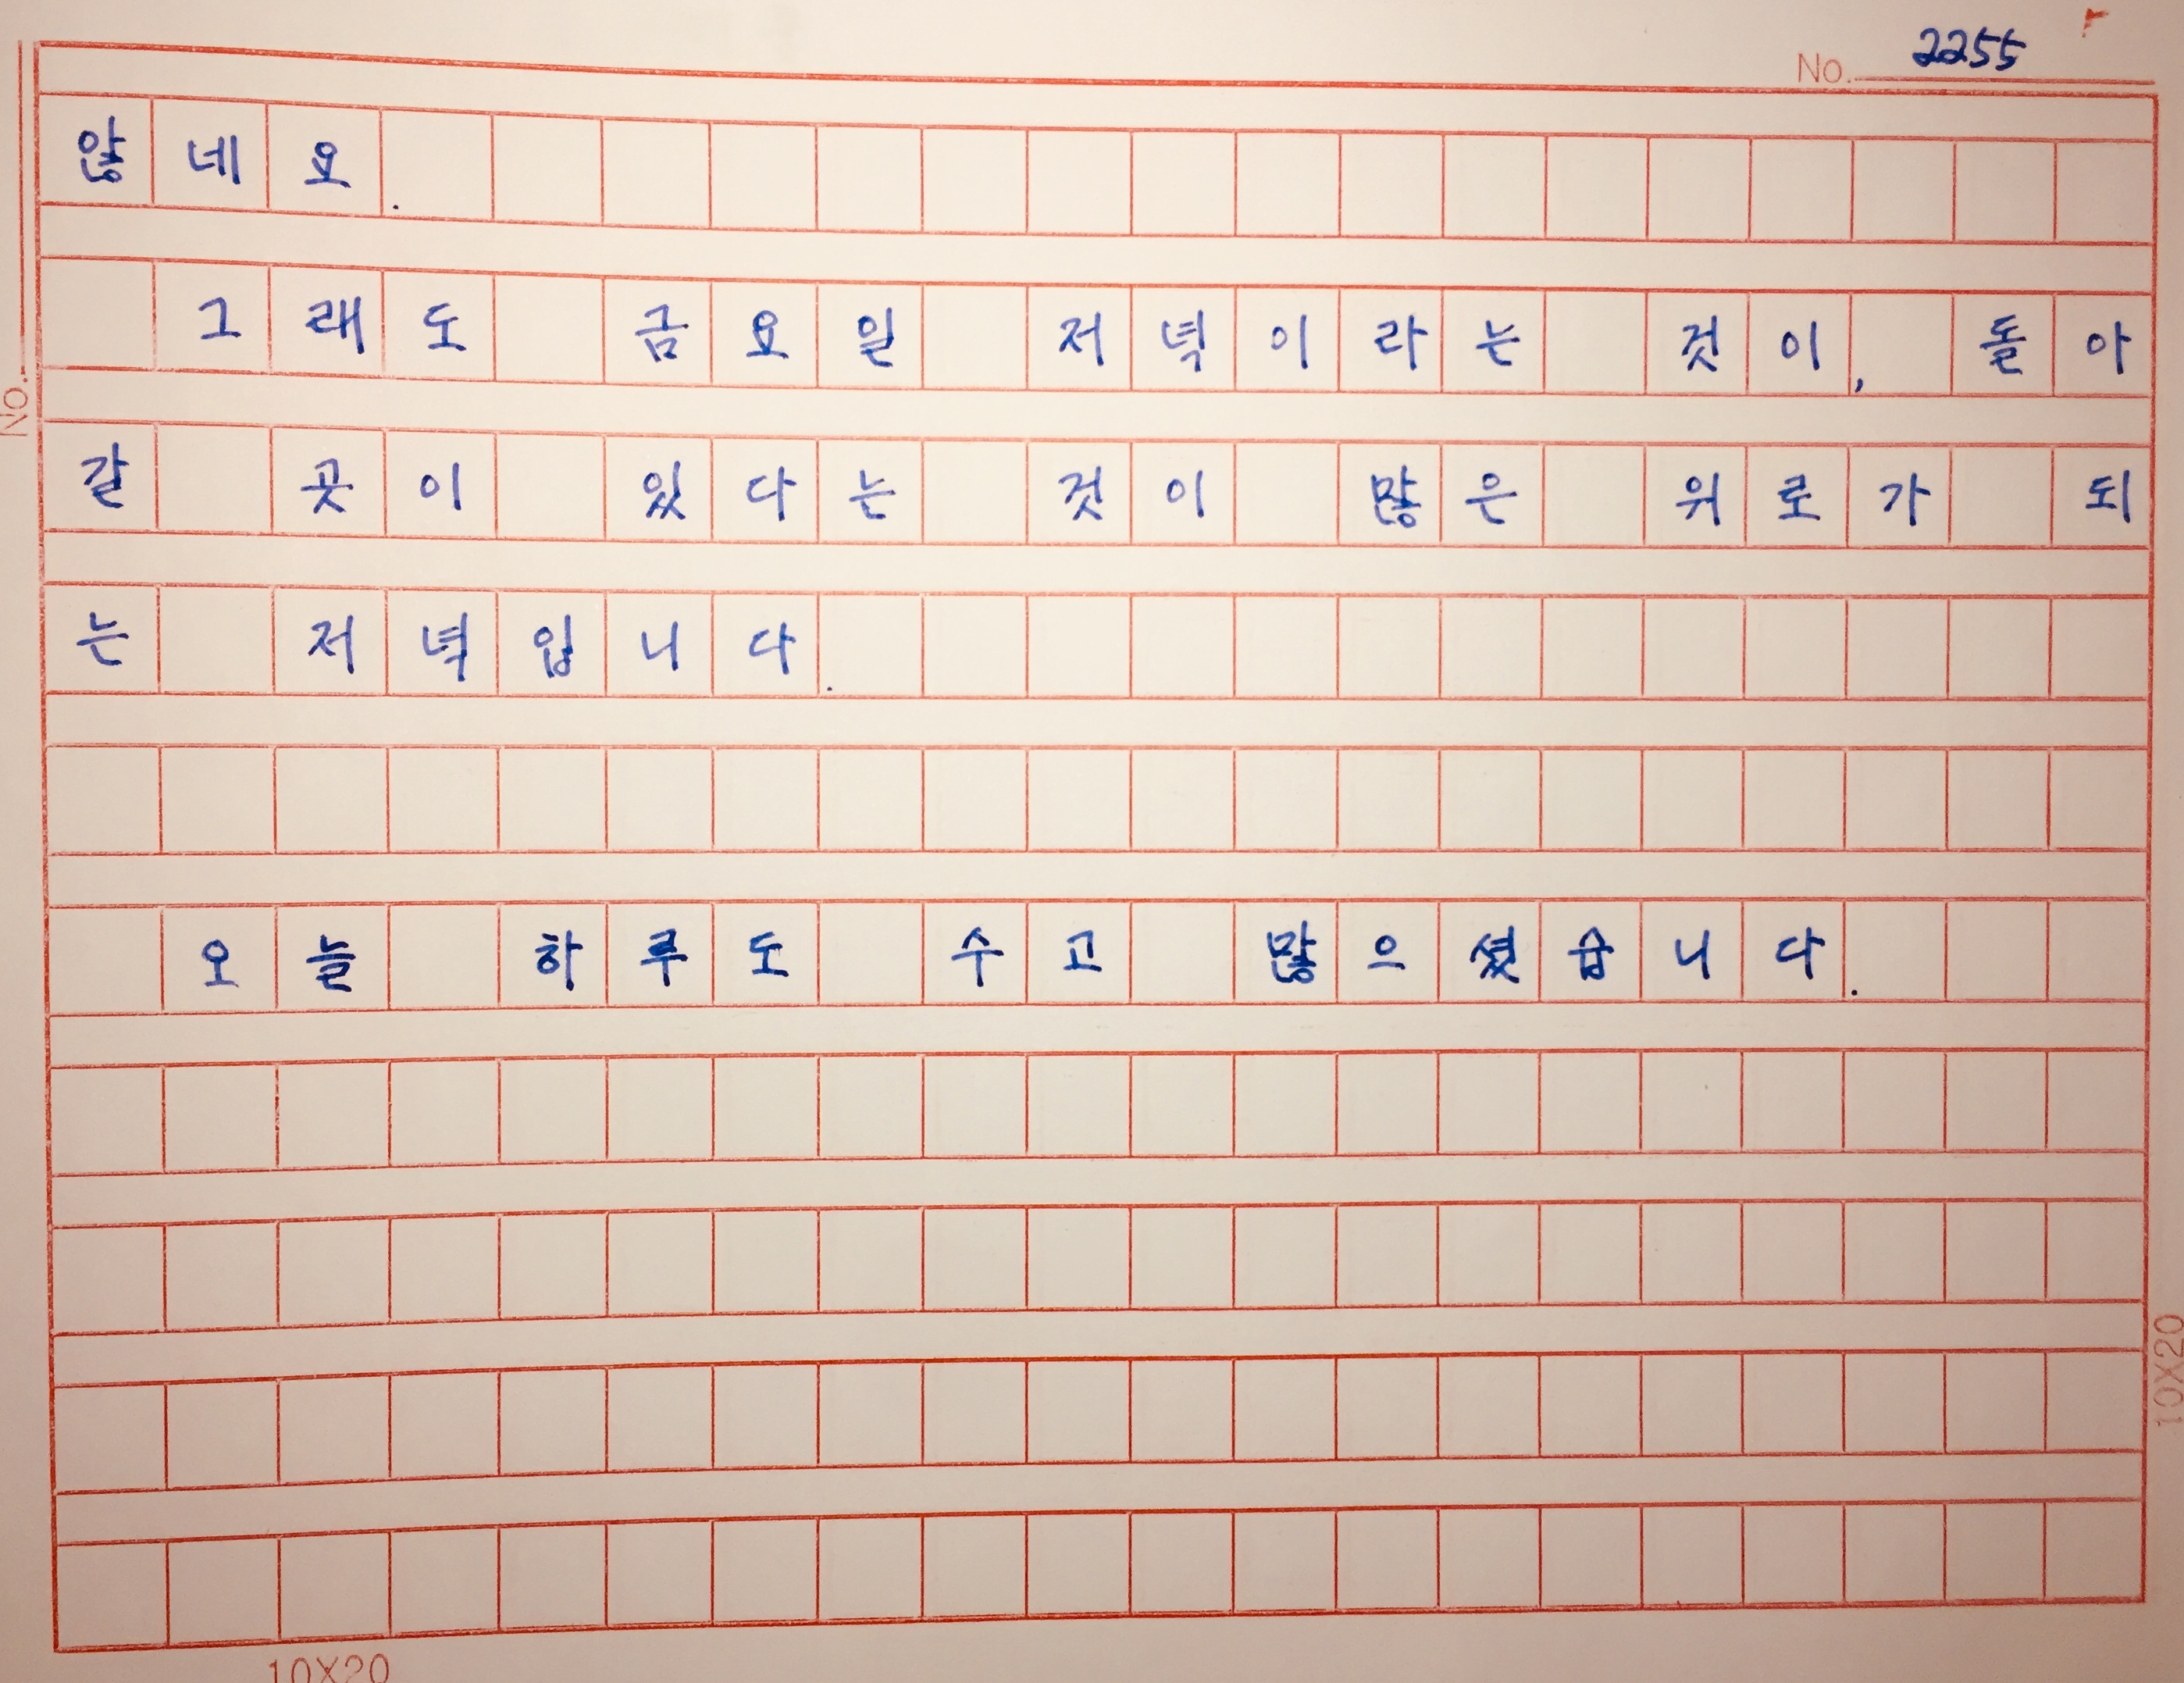 No. 2255
않네요.
그래도 금요일 저녁이라는 것이, 돌아
갈 곳이 있다는 것이 많은 위로가 되
는 저녁입니다.
오늘 하루도 수고 많으셨습니다.
No.
10X20
10X20